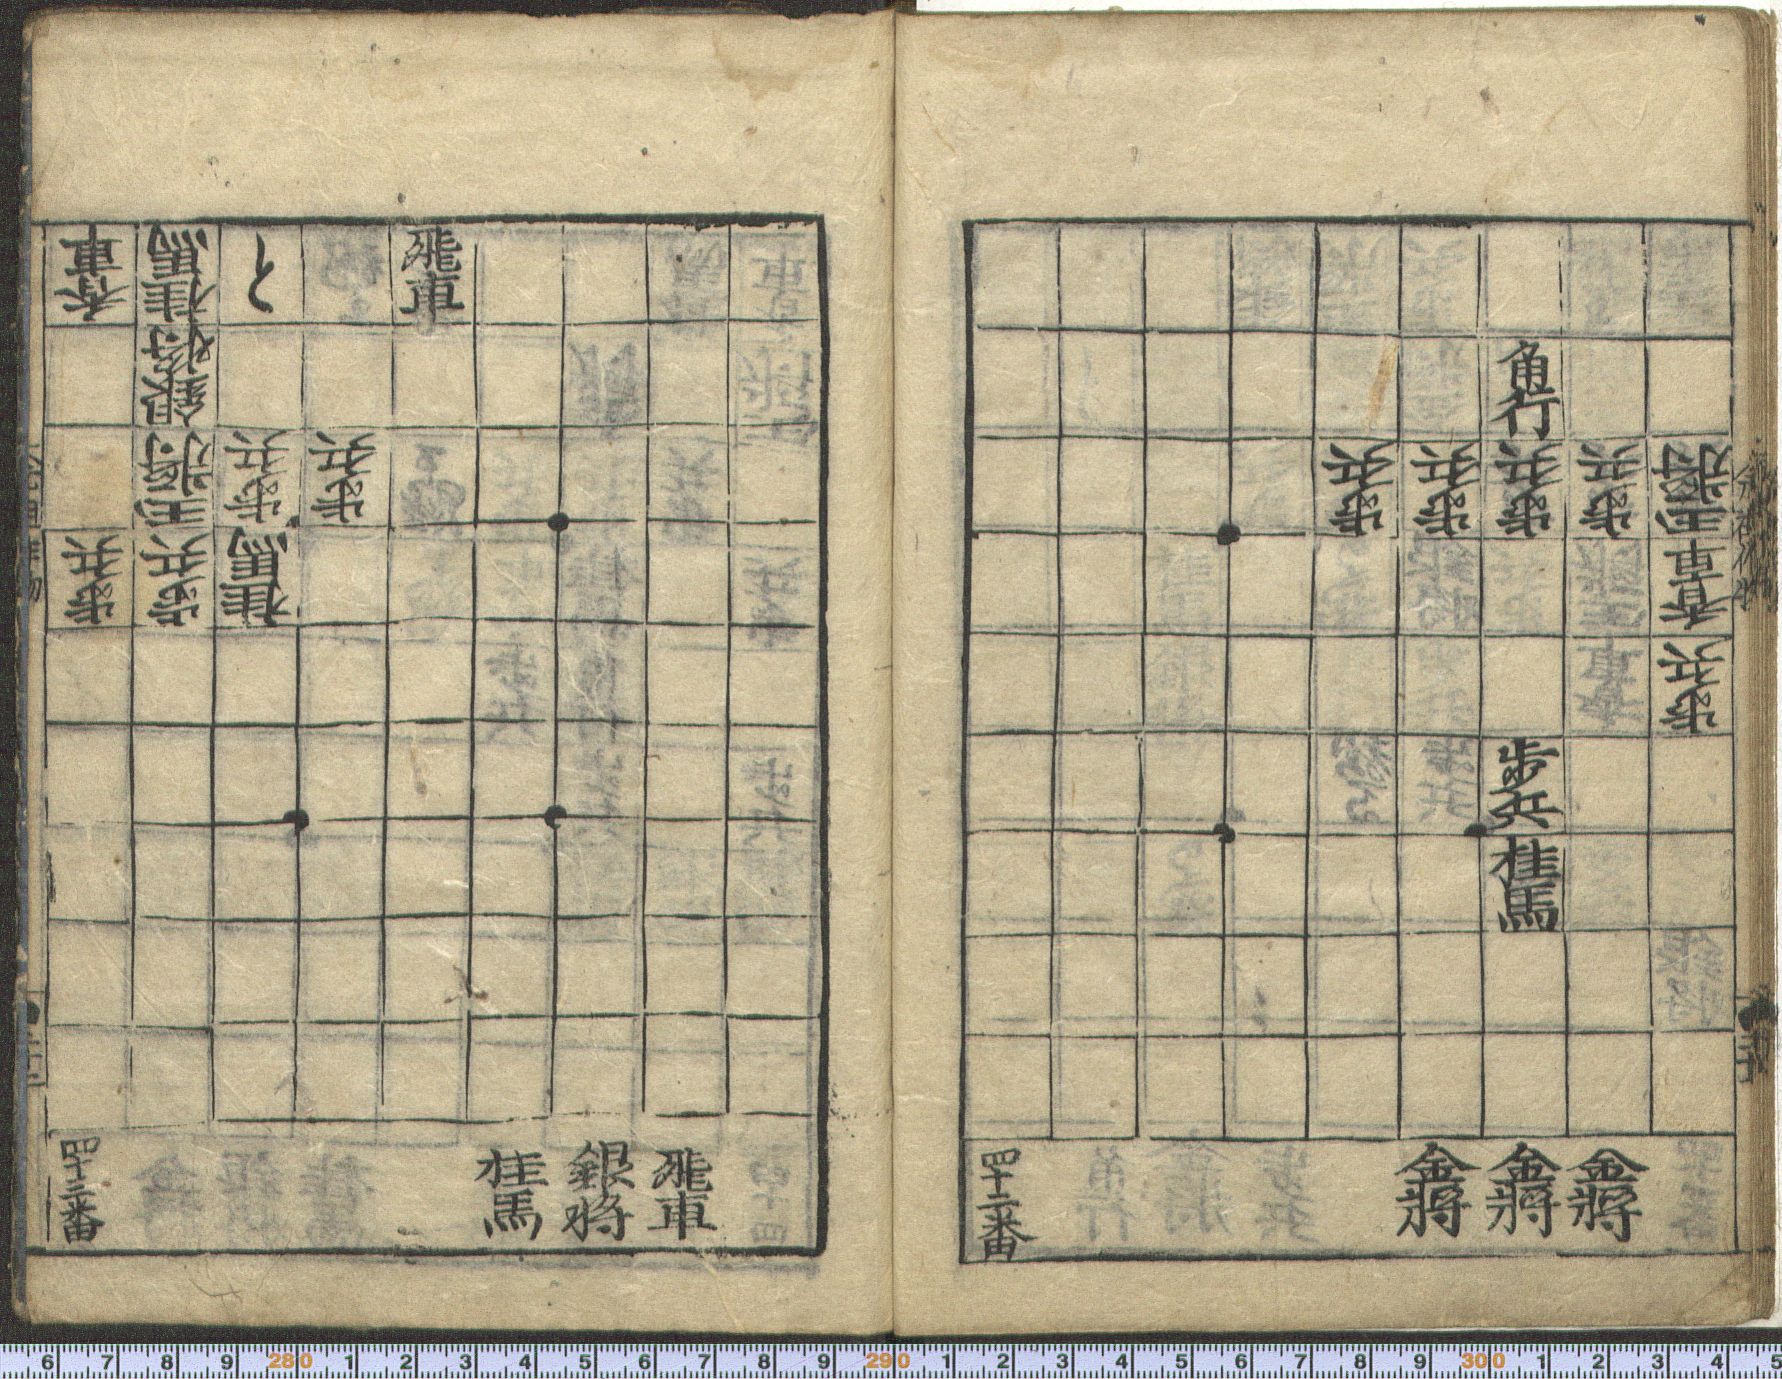 角行
歩兵 歩兵 歩兵 歩兵
香車
歩兵
歩兵
桂馬
四十二番 金将 金将 金将
香車 桂馬 と 飛車
銀将
歩兵 歩兵
歩兵 歩兵 桂馬
四十三番 桂馬 銀将 飛車
6 7 8 9 280 1 2 3 4 5 6 7 8 9 290 1 2 3 4 5 6 7 8 9 300 1 2 3 4 5